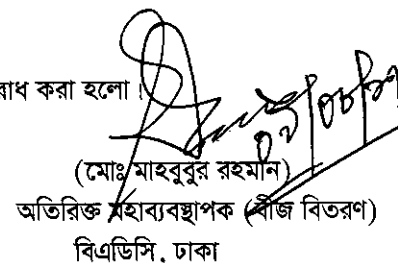 করা হলো।
(মোঃ মাহবুবুর রহমান)
অতিরিক্ত মহাব্যবস্থাপক (বীজ বিতরণ)
বিএডিসি, ঢাকা